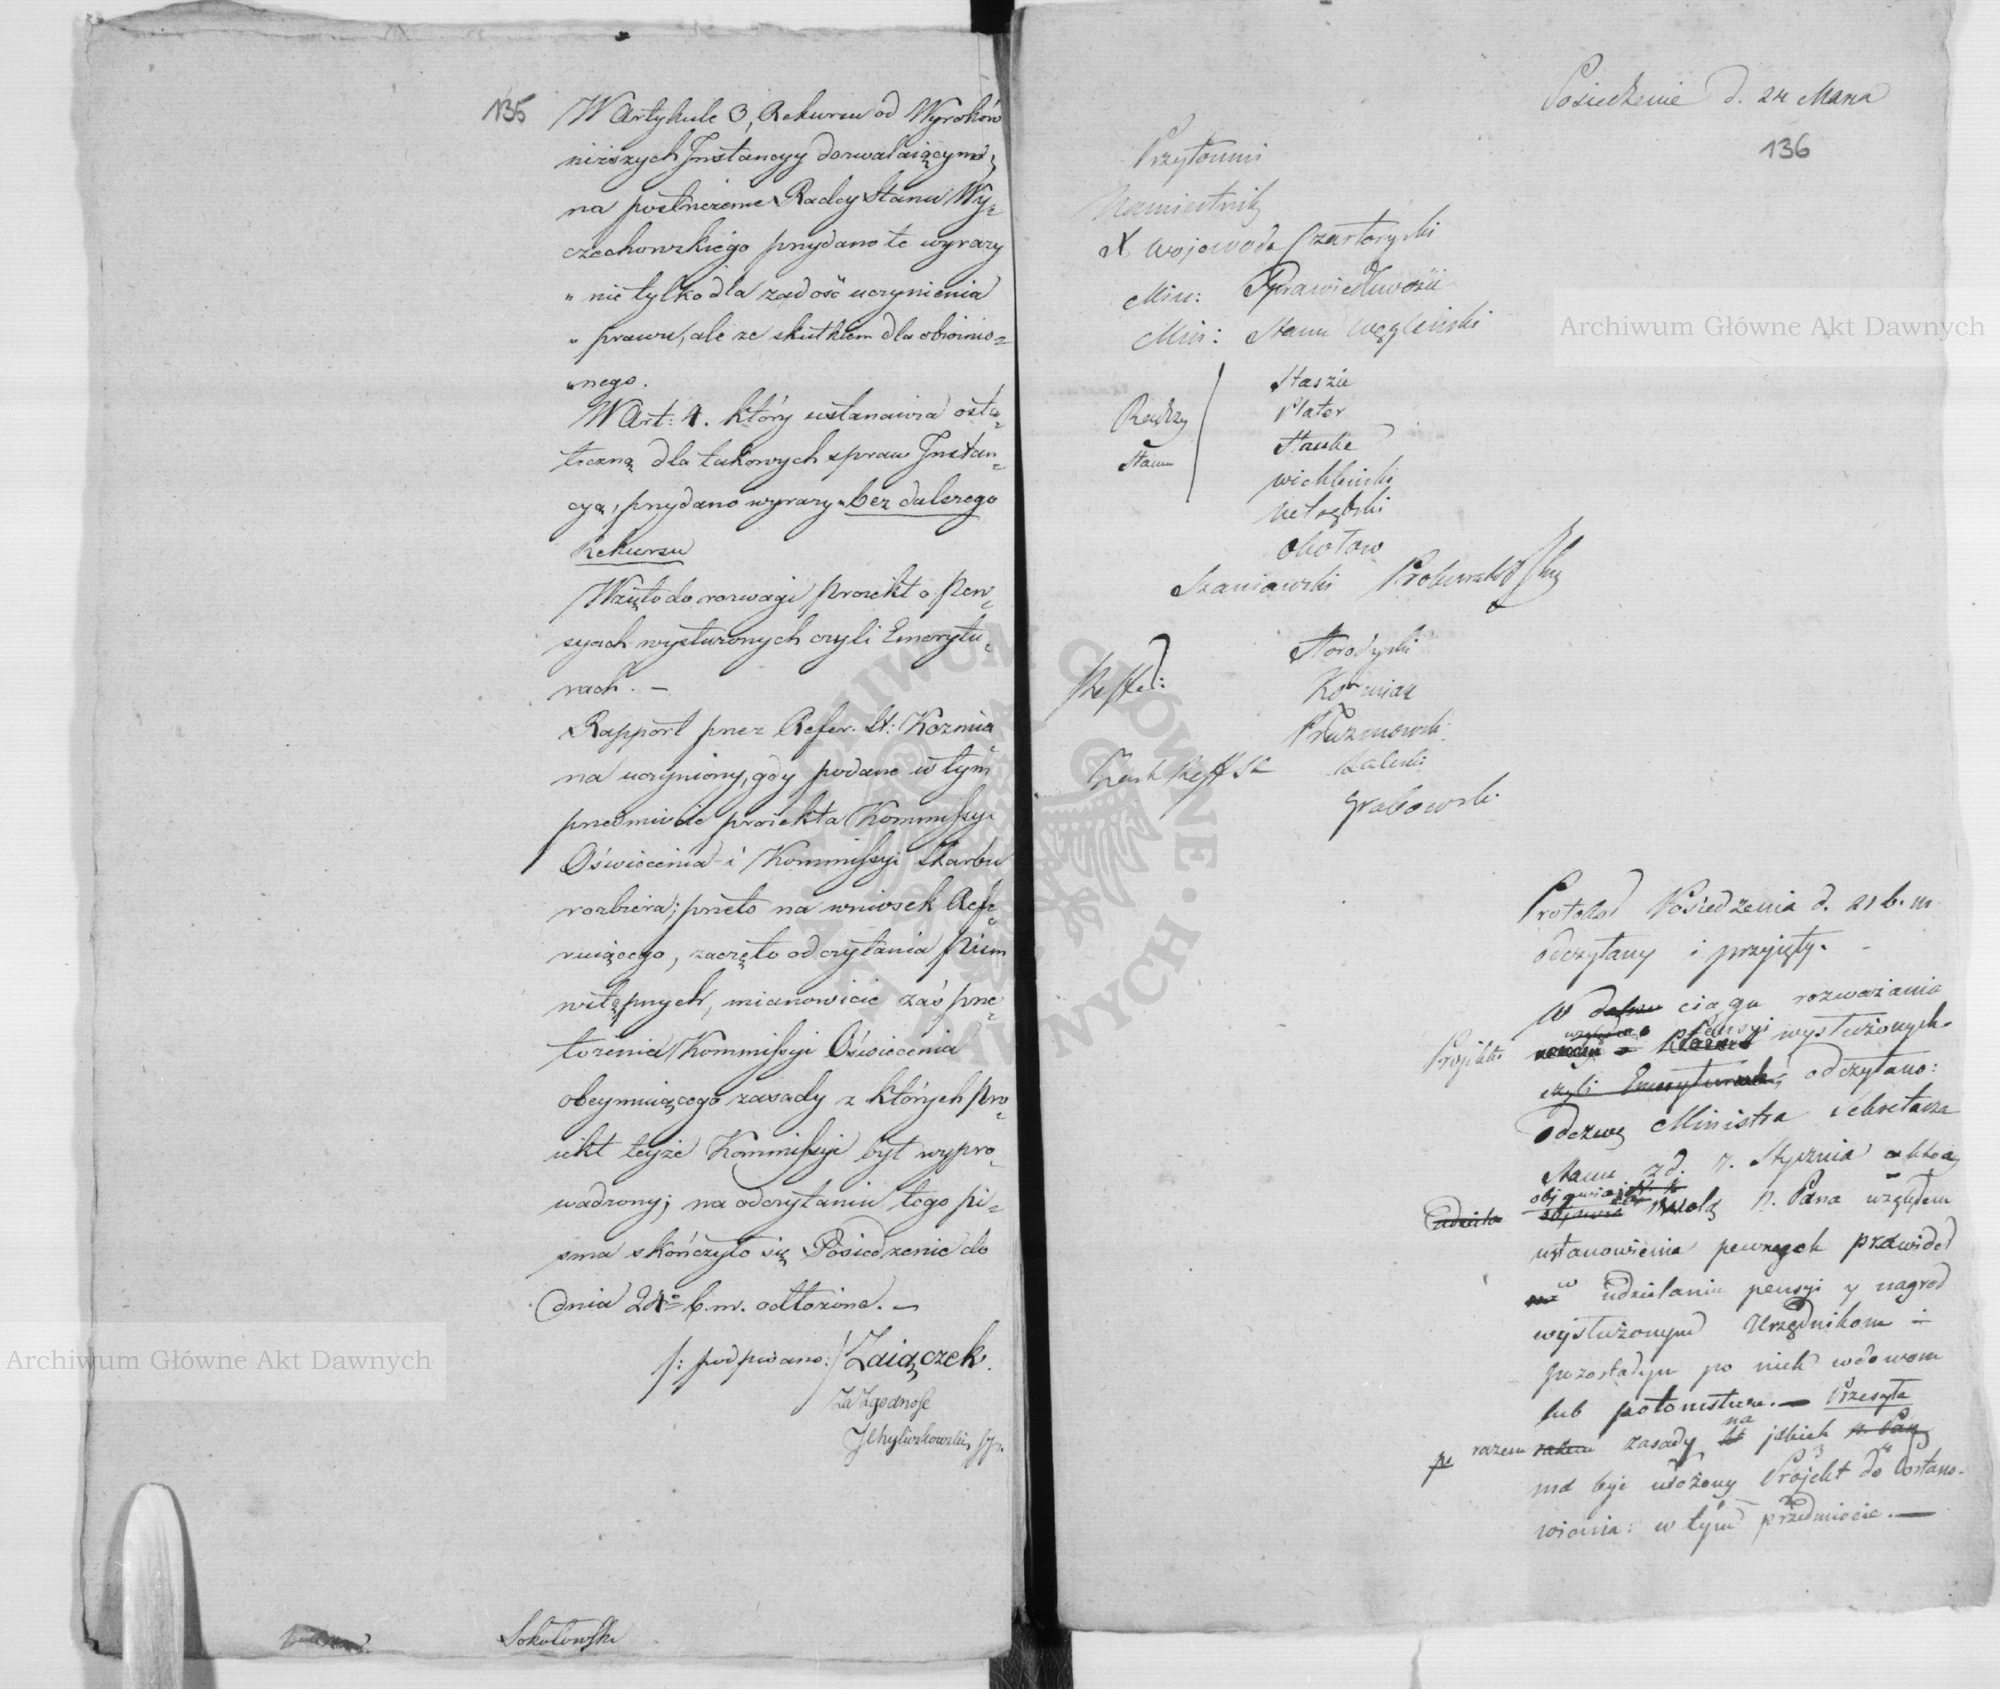 135
W Artykule 3, Rekursu od Wyroków
niższych Instancyy dozwalaiącym,
na postrzeżenie Radcy Stanu Wy„
czechowskiégo przydano te wyrazy
„ nie tylko dla zadość uczynienia
„ prawu, ale ze skutkiem dla obwinio„
„nego.
W Art: 4. który ustanawia osta„
teczną dla takowych spraw Instan„
cyą, przydano wyrazy „bez dalszego
Rekursu
Wzięto do rozwagi proiekt o pen„
syach wysłużonych czyli Emerytu„
rach. —
Rapport przez Refer. St: Koźmia„
na uczyniony, gdy podane w tym
przedmiocie proiekta Kommissyi
Oświecenia i Kommissyi Skarbu
rozbiera; przeto na wniosek Refe„
ruiącego, zaczęto od czytania pism
wstępnych, mianowicie zaś prze„
łożenia Kommissyi Oświecenia
obeymuiącego zasady z których pro„
iekt teyże Kommissyi był wypro„
wadzony; na odczytaniu tego pi„
sma skończyło się Posiedzenie do
dnia 24º b. m. odłożone. —
/: podpisano :/ Zaiączek.
Za Zgodność
Sokołowski
Posiedzenie d. 24 Marca
136
Przytomni
Namiestnik
X Wojewoda Czartoryski
Min: Sprawiedliwości
Min: Stanu Węgleński
Radzcy
Stanu
Staszic
Plater
Hauke
Wichliński
Nełęcki
Okołow
Szaniawski
Reffed:
Horodyski
Koźmian
Prażmowski
Zast Reff St
Zaleski
Grabowski
Protokół Posiedzenia d. 21 b. m.
odczytany i przyjęty. —
W dalszu ciągu rozważania
Projektu względem Pensyi wysłużonych
czyli Emeryturach, odczytano:
odezwę Ministra Sekretarza
Stanu z d. 7. Stycznia
udziela objawia wolą N. Pana względem
ustanowienia pewnych prawideł
w udzielaniu pensyi y nagrod
wysłużonym Urzędnikom i
pozostałym po nich wdowom
lub potomstwu. — Przesyła
razem razem zasady na jakich N. Pan
ma być ułożony Projekt do Postano„
wienia: w tym przedmiocie. —
Archiwum Główne Akt Dawnych
Archiwum Główne Akt Dawnych
ARCHIWUM GŁÓWNE AKT DAWNYCH